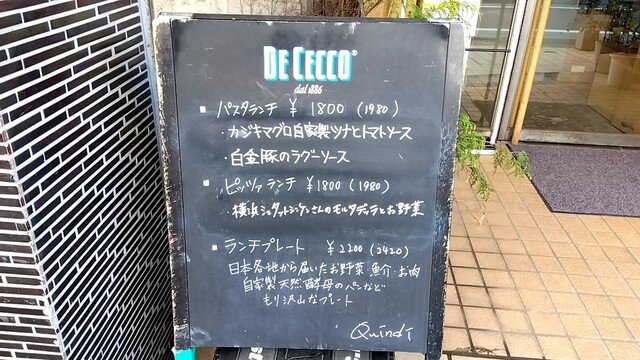 DE CECCO®
dal 1886
■ パスタランチ ¥1800 (1980)
・カジキマグロ自家製ツナとトマトソース
・白金豚のラグーソース
■ ピッツァランチ ¥1800 (1980)
・横浜シュタットシンケンさんのモルタデッラとお野菜
■ ランチプレート ¥2200 (2420)
日本各地から届いたお野菜・魚介・お肉
自家製天然酵母のパンなど
もり沢山なプレート
Quindi